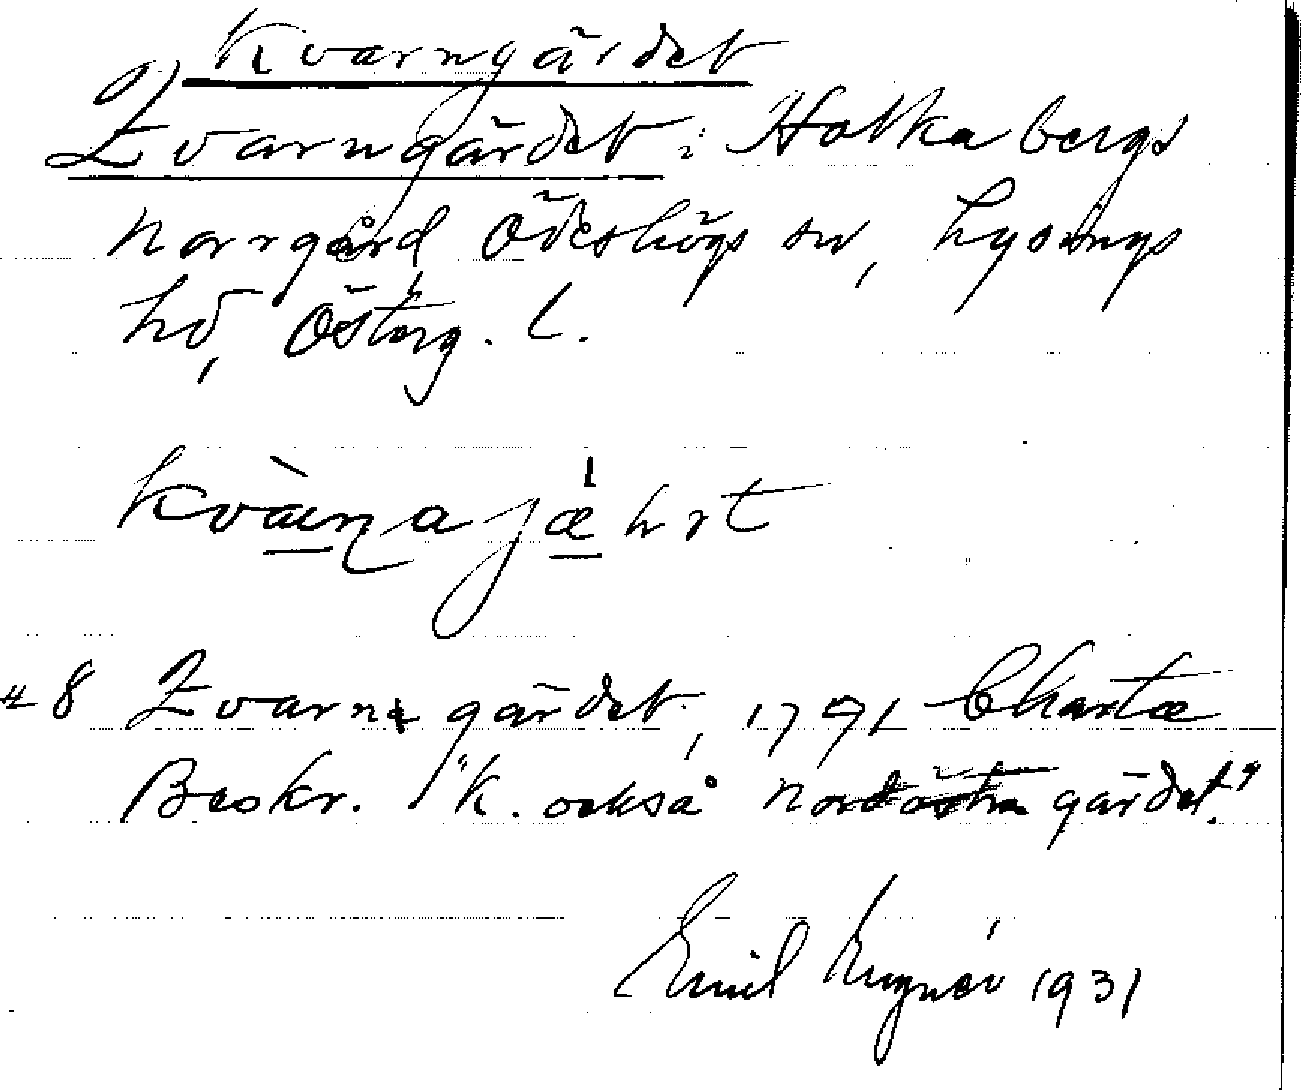 Kvarngärdet
Qvarngärdet: Holkabergs
norrgård Ödeshögs sn, Lysings
hd, Österg. l.
kvàrṇa jæ̍hrt
48 Qvarngärdet, 1791 Charta
Beskr. "K. också nordöstra gärdet."
Emil 1931